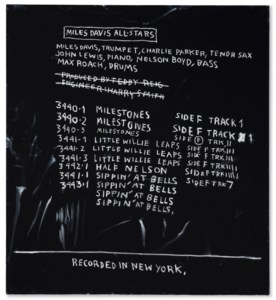 MILES DAVIS ALL-STARS
MILES DAVIS, TRUMPET, CHARLIE PARKER, TENOR SAX
JOHN LEWIS, PIANO, NELSON BOYD, BASS
MAX ROACH, DRUMS
PRODUCED BY TEDDY REIG
ENGINEER: HARRY SMITH
3440-1 MILESTONES SIDE F TRACK 1
3440-2 MILESTONES SIDE F TRACK
3440-3 MILESTONES SIDE F
3441-1 LITTLE WILLIE LEAPS SIDE F
3441-2 LITTLE WILLIE LEAPS SIDE F
3441-3 LITTLE WILLIE LEAPS SIDE F
3442-1 HALF NELSON SIDE F
3443-1 SIPPIN' AT BELLS SIDE F TRK 7
SIPPIN' AT BELLS
SIPPIN' AT BELLS
SIPPIN' AT BELLS.
RECORDED IN NEW YORK,